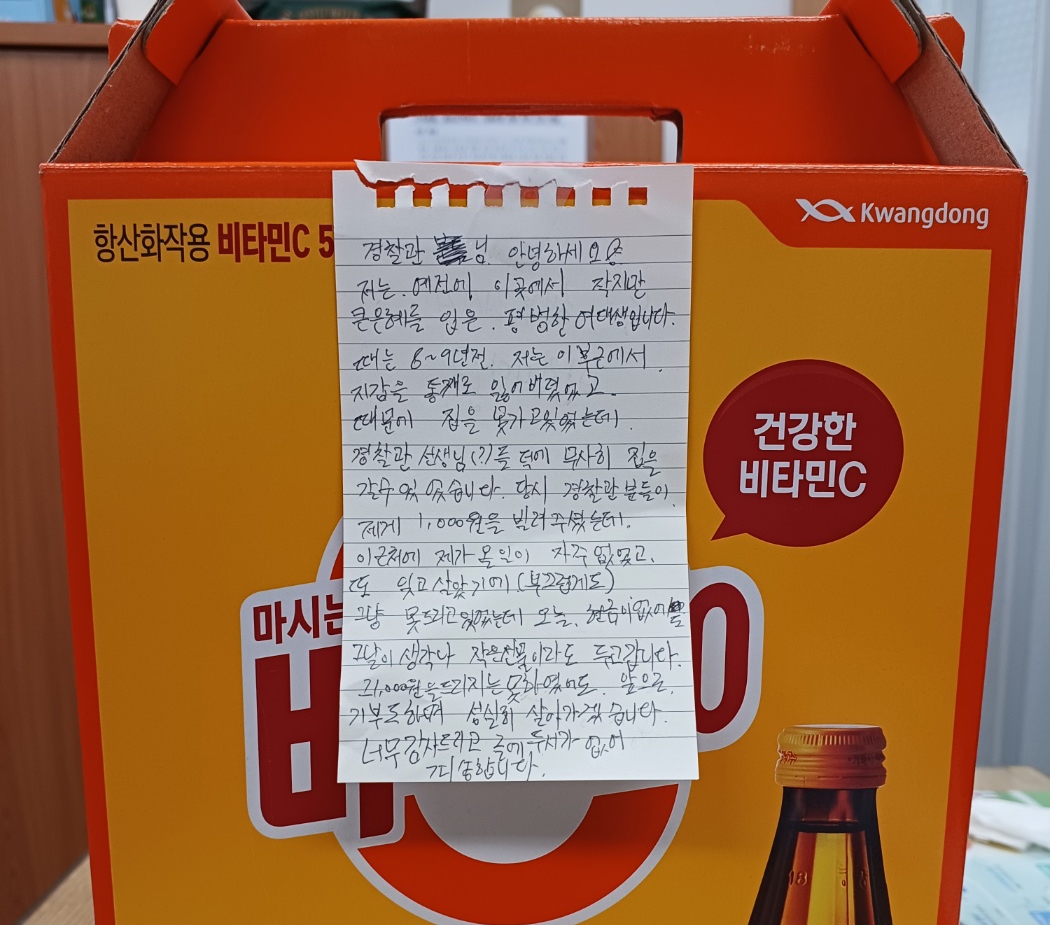 항산화작용 비타민C 5
Kwangdong
경찰관 님 안녕하세요
저는. 예전에 이곳에서 작지만
큰은혜를 입은. 평범한 여대생입니다.
때는 8~9년전. 저는 이 부근에서
지갑을 통째로 잃어버렸었고.
때문에 집을 못가고있었는데.
경찰관 선생님(?)들 덕에 무사히 집을
갈수 있었습니다. 당시 경찰관분들이
제게 1,000원을 빌려주셨는데.
이근처에 제가 올일이 자주 없었고,
또 잊고살았기에 (부끄럽게도)
그냥 못드리고있었는데 오늘. 현금이없어
그날이 생각나 작은선물이라도 두고갑니다.
그1,000원을드리지는못하였어도. 앞으로,
기부도하며 성실히 살아가겠습니다.
너무감사드리고 글에 두서가 없어
죄송합니다.
건강한
비타민C
마시는
비
0